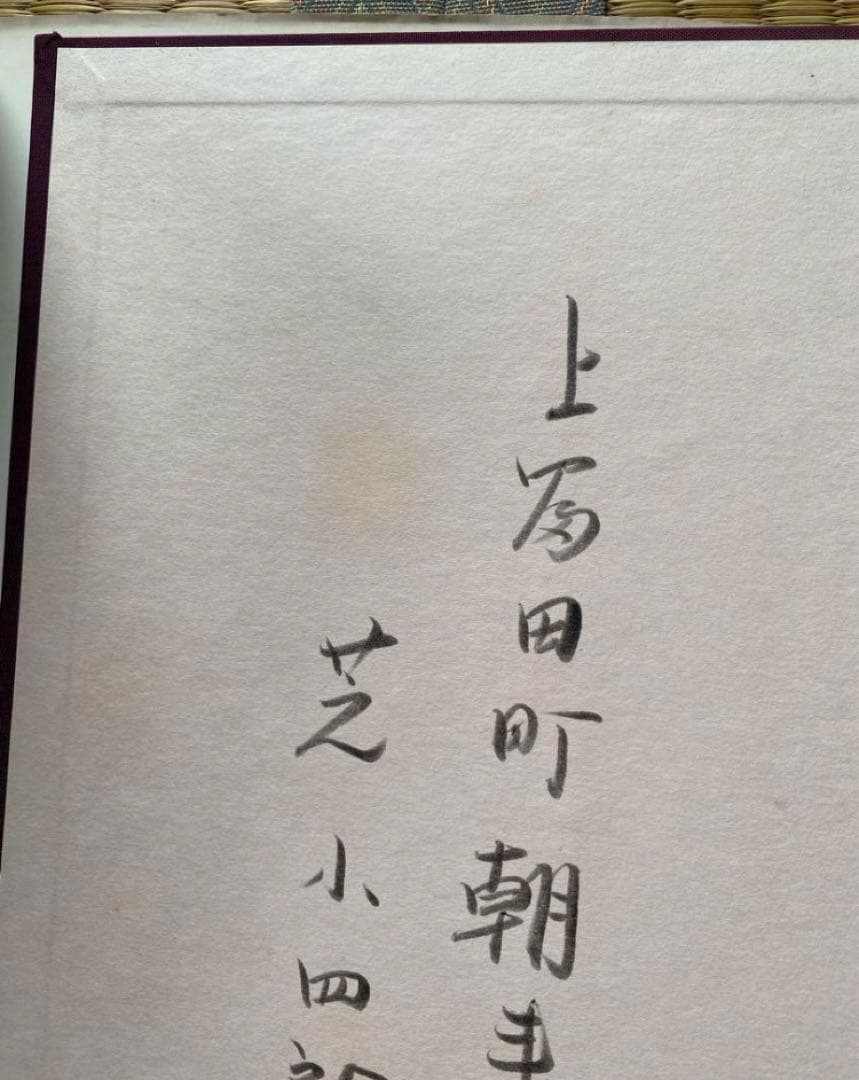 上冨田町朝
芝小四